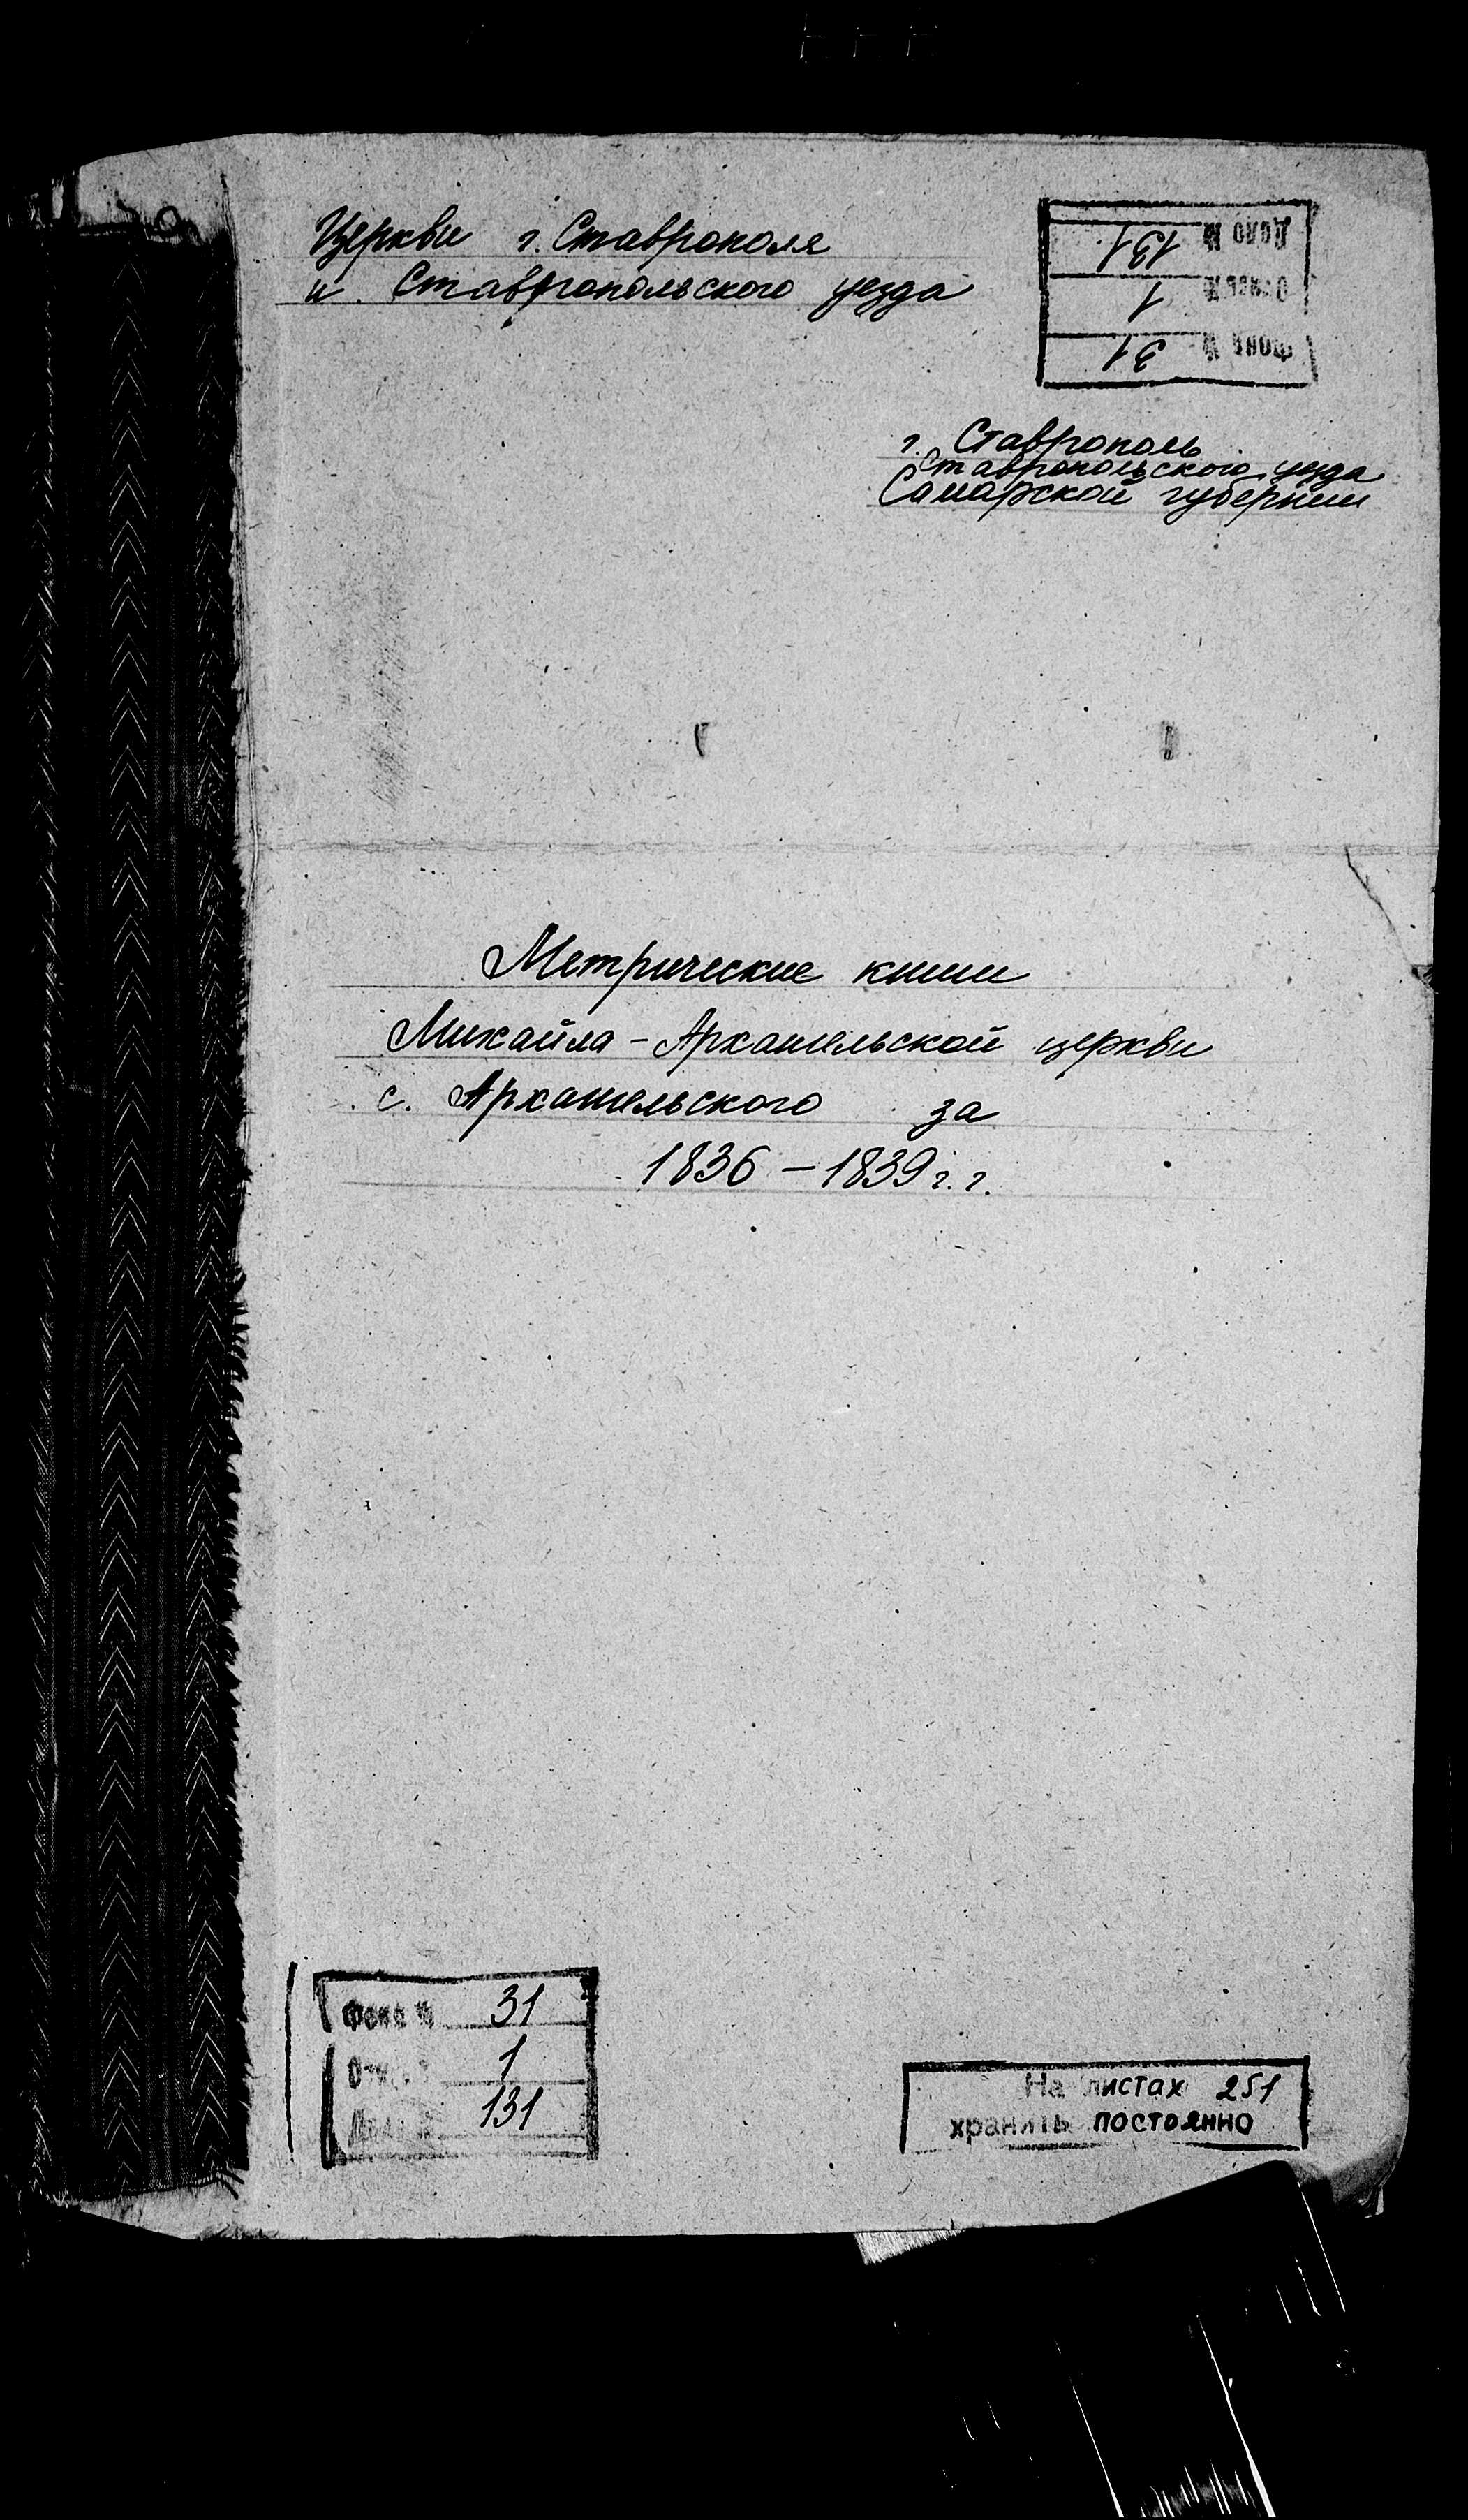 Церкви г. Ставрополя
и Ставропольского уезда
Дело № 131
Опись № 1
Фонд № 31
г. Ставрополь
Ставропольского уезда
Самарской губернии
Метрические книги
Михайла-Архангельской церкви
с. Архангельского за
1836-1839 г.г.
Фонд № 31
Опись № 1
Дело № 131
На листах 251
хранить постоянно